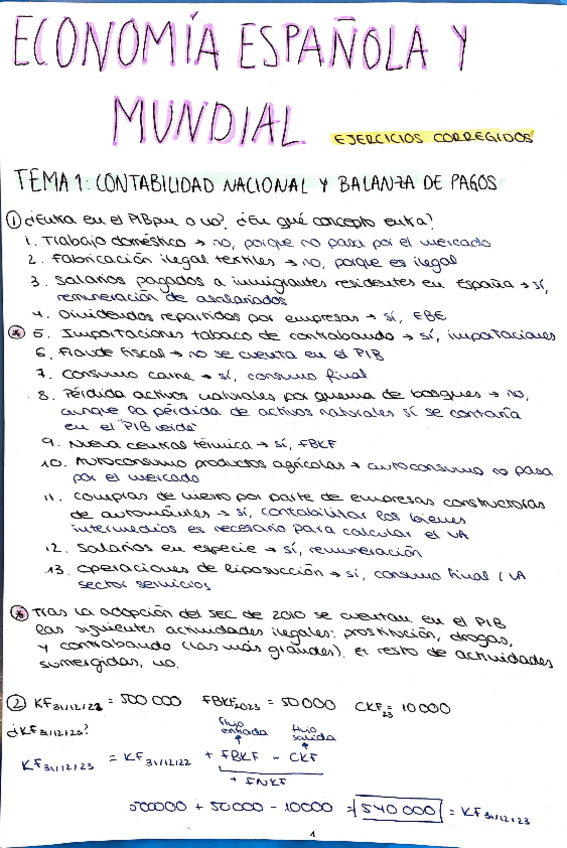 ECONOMÍA ESPAÑOLA Y
MUNDIAL.
EJERCICIOS CORREGIDOS
TEMA 1: CONTABILIDAD NACIONAL Y BALANZA DE PAGOS
① ¿Entra en el PIBpm o no? ¿En qué concepto entra?
1. Trabajo doméstico → no, porque no pasa por el mercado
2. Fabricación ilegal textiles → no, porque es ilegal
3. Salarios pagados a inmigrantes residentes en España → sí,
remuneración de asalariados
4. Dividendos repartidos por empresas → sí, EBE
* 5. Importaciones tabaco de contrabando → sí, importaciones
6. Fraude fiscal → no se cuenta en el PIB
7. Consumo carne → sí, consumo final
8. Pérdida activos naturales por quema de bosques → no,
aunque la pérdida de activos naturales sí se contaría
en el "PIB verde"
9. Nueva central térmica → sí, FBKF
10. Autoconsumo productos agrícolas → autoconsumo no pasa
por el mercado
11. Compras de hierro por parte de empresas constructoras
de automóviles → sí, contabilizar los bienes
intermedios es necesario para calcular el VA
12. Salarios en especie → sí, remuneración
13. Operaciones de liposucción → sí, consumo final / VA
sector servicios
* Tras la adopción del SEC de 2010 se cuentan en el PIB
las siguientes actividades ilegales: prostitución, drogas,
y contrabando (las más grandes). El resto de actividades
sumergidas, no.
② KF31/12/22 = 500 000 FBKF2023 = 50000 CKF23 = 10000
¿KF31/12/23?
flujo entrada flujo salida
KF31/12/23 = KF31/12/22 + FBKF - CKF
+ FNKF
500000 + 50000 - 10000 = 540 000 = KF31/12/23
1